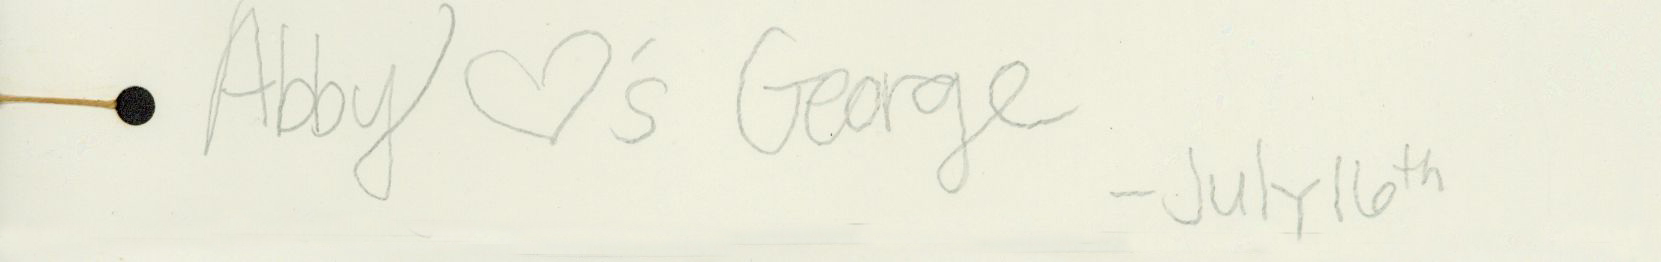 Abby ♡'s George
- July 16th